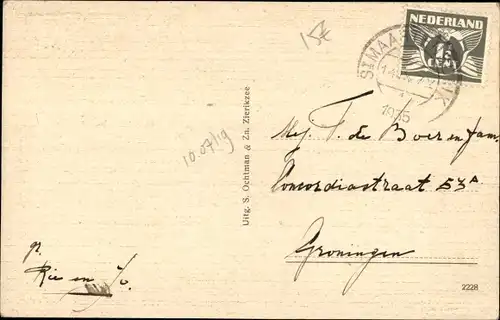 15€
NEDERLAND
CENT
1935
10.07/19
Uitg. S. Ochtman & Zn. Zierikzee
Mej. T. de Boer en fam.
Concordiastraat 53A
Groningen
gr.
Rie en
2228